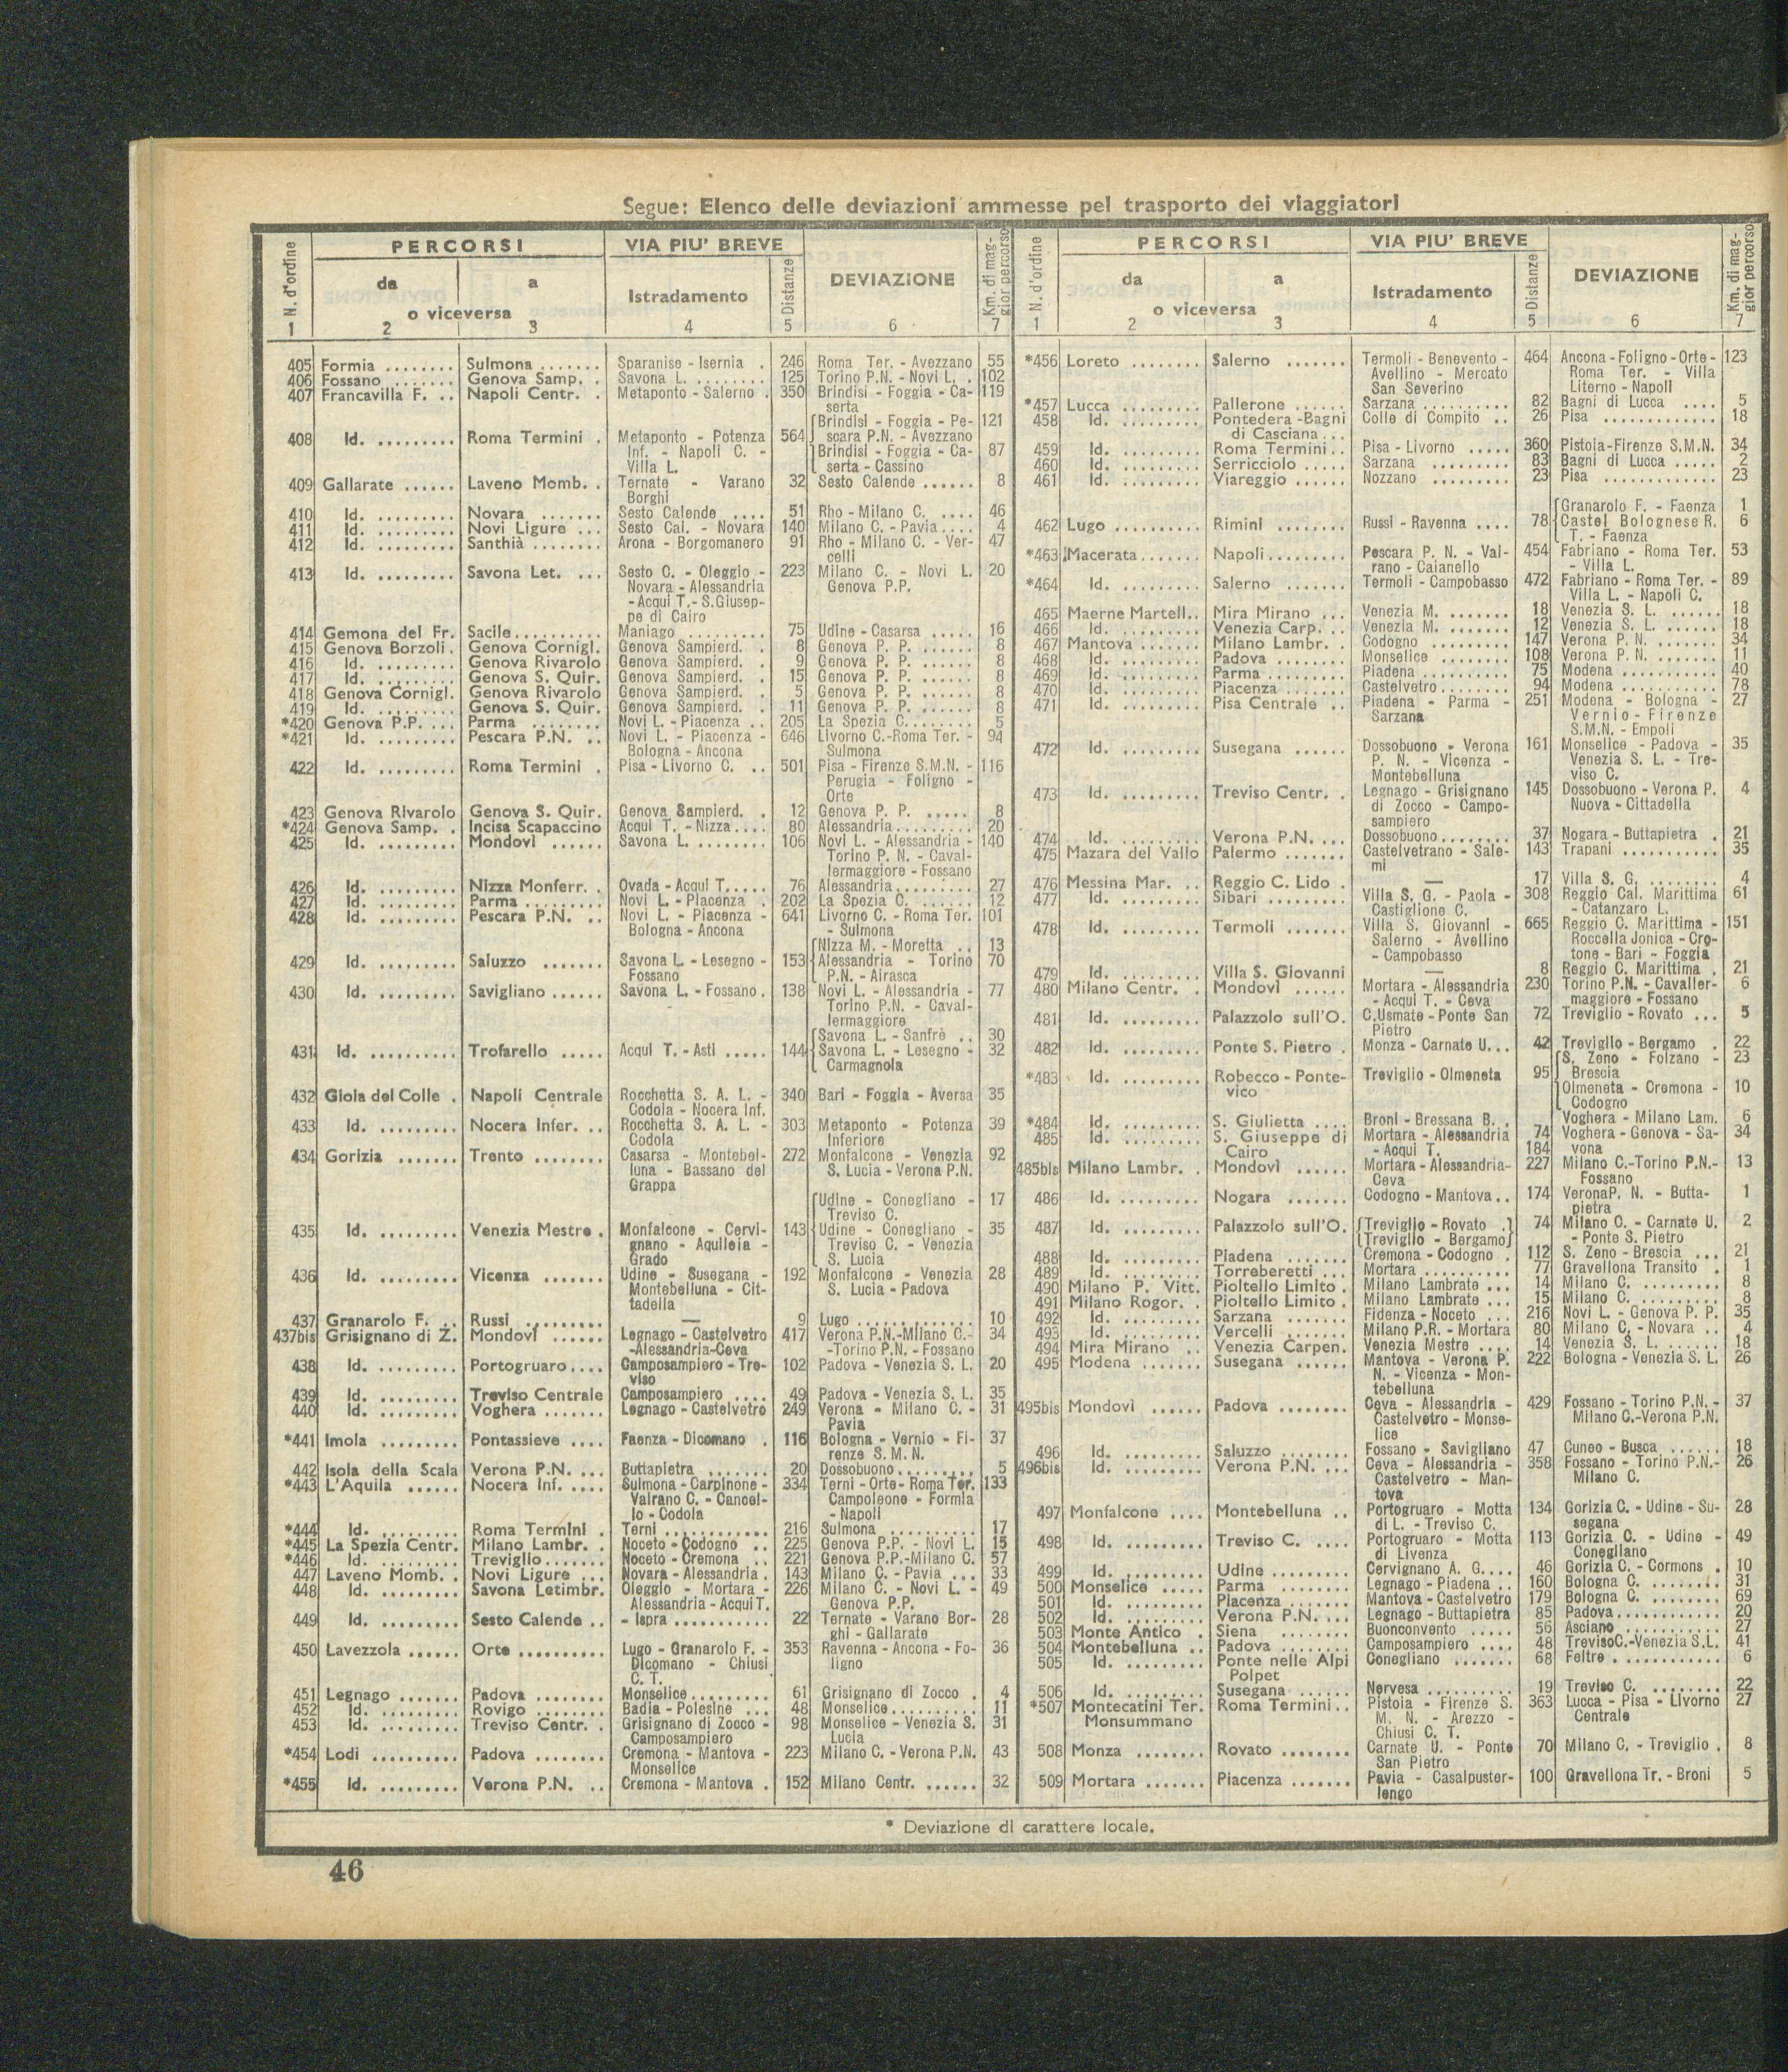 Segue: Elenco delle deviazioni ammesse pel trasporto dei viaggiatori
N. d'ordine PERCORSI VIA PIU' BREVE DEVIAZIONE Km. di maggior percorso
da a Istradamento Distanze
o viceversa
1 2 3 4 5 6 7
405 Formia ........ Sulmona ....... Sparanise - Isernia . 246 Roma Ter. - Avezzano 55
406 Fossano ....... Genova Samp. . Savona L. ......... 125 Torino P.N. - Novi L. . 102
407 Francavilla F. .. Napoli Centr. . Metaponto - Salerno . 350 Brindisi - Foggia - Ca- 119
serta
Brindisi - Foggia - Pe- 121
408 Id. ......... Roma Termini . Metaponto - Potenza 564 scara P.N. - Avezzano
Inf. - Napoli C. - Brindisi - Foggia - Ca- 87
Villa L. serta - Cassino
409 Gallarate ...... Laveno Momb. . Ternate - Varano 32 Sesto Calende ...... 8
Borghi
410 Id. ......... Novara ....... Sesto Calende .... 51 Rho - Milano C. .... 46
411 Id. ......... Novi Ligure ... Sesto Cal. - Novara 140 Milano C. - Pavia .... 4
412 Id. ......... Santhià ........ Arona - Borgomanero 91 Rho - Milano C. - Ver- 47
celli
413 Id. ......... Savona Let. ... Sesto C. - Oleggio - 223 Milano C. - Novi L. 20
Novara - Alessandria Genova P.P.
- Acqui T.- S.Giusep-
pe di Cairo
414 Gemona del Fr. Sacile .......... Maniago ......... 75 Udine - Casarsa ..... 16
415 Genova Borzoli . Genova Cornigl. Genova Sampierd. . 8 Genova P. P. ....... 8
416 Id. ......... Genova Rivarolo Genova Sampierd. . 9 Genova P. P. ...... 8
417 Id. ......... Genova S. Quir. Genova Sampierd. . 15 Genova P. P. ...... 8
418 Genova Cornigl. Genova Rivarolo Genova Sampierd. . 5 Genova P. P. ...... 8
419 Id. ......... Genova S. Quir. Genova Sampierd. . 11 Genova P. P. ...... 8
*420 Genova P.P. ... Parma ........ Novi L. - Piacenza .. 205 La Spezia C. ....... 5
*421 Id. ......... Pescara P.N. .. Novi L. - Piacenza - 646 Livorno C.-Roma Ter. - 94
Bologna - Ancona Sulmona
422 Id. ......... Roma Termini . Pisa - Livorno C. .. 501 Pisa - Firenze S.M.N. - 116
Perugia - Foligno -
Orte
423 Genova Rivarolo Genova S. Quir. Genova Sampierd. . 12 Genova P. P. ..... 8
*424 Genova Samp. . Incisa Scapaccino Acqui T. - Nizza .... 80 Alessandria ......... 20
425 Id. ......... Mondovì ...... Savona L. ........ 106 Novi L. - Alessandria - 140
Torino P. N. - Caval-
lermaggiore - Fossano
426 Id. ......... Nizza Monferr. . Ovada - Acqui T. .... 76 Alessandria ......... 27
427 Id. ......... Parma ......... Novi L. - Piacenza . 202 La Spezia C. ...... 12
428 Id. ......... Pescara P.N. .. Novi L. - Piacenza - 641 Livorno C. - Roma Ter. 101
Bologna - Ancona - Sulmona
Nizza M. - Moretta .. 13
429 Id. ......... Saluzzo ....... Savona L. - Lesegno - 153 Alessandria - Torino 70
Fossano P.N. - Airasca
430 Id. ......... Savigliano ...... Savona L. - Fossano . 138 Novi L. - Alessandria - 77
Torino P.N. - Caval-
lermaggiore
Savona L. - Sanfrè .. 30
431 Id. .......... Trofarello ..... Acqui T. - Asti ..... 144 Savona L. - Lesegno - 32
Carmagnola
432 Gioia del Colle . Napoli Centrale Rocchetta S. A. L. - 340 Bari - Foggia - Aversa 35
Codola - Nocera Inf.
433 Id. ......... Nocera Infer. .. Rocchetta S. A. L. - 303 Metaponto - Potenza 39
Codola Inferiore
434 Gorizia ....... Trento ........ Casarsa - Montebel- 272 Monfalcone - Venezia 92
luna - Bassano del S. Lucia - Verona P.N.
Grappa
Udine - Conegliano - 17
Treviso C.
435 Id. ......... Venezia Mestre . Monfalcone - Cervi- 143 Udine - Conegliano - 35
gnano - Aquileia - Treviso C. - Venezia
Grado S. Lucia
436 Id. ......... Vicenza ....... Udine - Susegana - 192 Monfalcone - Venezia 28
Montebelluna - Cit- S. Lucia - Padova
tadella
437 Granarolo F. .. Russi ......... — 9 Lugo ............. 10
437bis Grisignano di Z. Mondovì ...... Legnago - Castelvetro 417 Verona P.N.-Milano C.- 34
-Alessandria-Ceva -Torino P.N. - Fossano
438 Id. ......... Portogruaro .... Camposampiero - Tre- 102 Padova - Venezia S. L. 20
viso
439 Id. ......... Treviso Centrale Camposampiero .... 49 Padova - Venezia S. L. 35
440 Id. ......... Voghera ....... Legnago - Castelvetro 249 Verona - Milano C. - 31
Pavia
*441 Imola ......... Pontassieve .... Faenza - Dicomano . 116 Bologna - Vernio - Fi- 37
renze S.M.N.
442 Isola della Scala Verona P.N. ... Buttapietra ....... 20 Dossobuono ......... 5
*443 L'Aquila ...... Nocera Inf. .... Sulmona - Carpinone - 334 Terni - Orte - Roma Ter. 133
Vairano C. - Cancel- Campoleone - Formia
lo - Codola - Napoli
*444 Id. ......... Roma Termini . Terni ............ 216 Sulmona .......... 17
*445 La Spezia Centr. Milano Lambr. . Noceto - Codogno .. 225 Genova P.P. - Novi L. 15
*446 Id. ......... Treviglio ....... Noceto - Cremona .. 221 Genova P.P.-Milano C. 57
447 Laveno Momb. . Novi Ligure ... Novara - Alessandria . 143 Milano C. - Pavia ... 33
448 Id. ......... Savona Letimbr. Oleggio - Mortara - 226 Milano C. - Novi L. - 49
Alessandria - Acqui T. Genova P.P.
449 Id. ......... Sesto Calende .. - Ispra ........... 22 Ternate - Varano Bor- 28
ghi - Gallarate
450 Lavezzola ...... Orte .......... Lugo - Granarolo F. - 353 Ravenna - Ancona - Fo- 36
Dicomano - Chiusi ligno
C. T.
451 Legnago ....... Padova ........ Monselice ......... 61 Grisignano di Zocco . 4
452 Id. ......... Rovigo ........ Badia - Polesine ... 48 Monselice .......... 11
453 Id. ......... Treviso Centr. . Grisignano di Zocco - 98 Monselice - Venezia S. 31
Camposampiero Lucia
*454 Lodi .......... Padova ........ Cremona - Mantova - 223 Milano C. - Verona P.N. 43
Monselice
*455 Id. ......... Verona P.N. .. Cremona - Mantova . 152 Milano Centr. ...... 32
N. d'ordine PERCORSI VIA PIU' BREVE DEVIAZIONE Km. di maggior percorso
da a Istradamento Distanze
o viceversa
1 2 3 4 5 6 7
*456 Loreto ........ Salerno ....... Termoli - Benevento - 464 Ancona - Foligno - Orte - 123
Avellino - Mercato Roma Ter. - Villa
San Severino Literno - Napoli
*457 Lucca ......... Pallerone ...... Sarzana .......... 82 Bagni di Lucca .... 5
458 Id. ......... Pontedera -Bagni Colle di Compito .. 26 Pisa ............. 18
di Casciana ...
459 Id. ......... Roma Termini .. Pisa - Livorno ..... 360 Pistoia-Firenze S.M.N. 34
460 Id. ......... Serricciolo ..... Sarzana ......... 83 Bagni di Lucca ..... 2
461 Id. ......... Viareggio ...... Nozzano ......... 23 Pisa ............. 23
Granarolo F. - Faenza 1
462 Lugo .......... Rimini ........ Russi - Ravenna .... 78 Castel Bolognese R. 6
T. - Faenza
*463 Macerata ....... Napoli ......... Pescara P. N. - Vai- 454 Fabriano - Roma Ter. 53
rano - Caianello - Villa L.
*464 Id. ......... Salerno ....... Termoli - Campobasso 472 Fabriano - Roma Ter. - 89
Villa L. - Napoli C.
465 Maerne Martell.. Mira Mirano ... Venezia M. ....... 18 Venezia S. L. ...... 18
466 Id. ......... Venezia Carp. .. Venezia M. ....... 12 Venezia S. L. ...... 18
467 Mantova ....... Milano Lambr. . Codogno ......... 147 Verona P. N. ....... 34
468 Id. ......... Padova ........ Monselice ........ 108 Verona P. N. ....... 11
469 Id. ......... Parma ......... Piadena ......... 75 Modena ........... 40
470 Id. ......... Piacenza ....... Castelvetro ........ 94 Modena ........... 78
471 Id. ......... Pisa Centrale .. Piadena - Parma - 251 Modena - Bologna - 27
Sarzana Vernio - Firenze
S.M.N. - Empoli
472 Id. ......... Susegana ...... Dossobuono - Verona 161 Monselice - Padova - 35
P. N. - Vicenza - Venezia S. L. - Tre-
Montebelluna viso C.
473 Id. ......... Treviso Centr. . Legnago - Grisignano 145 Dossobuono - Verona P. 4
di Zocco - Campo- Nuova - Cittadella
sampiero
474 Id. ......... Verona P.N. ... Dossobuono ........ 37 Nogara - Buttapietra . 21
475 Mazara del Vallo Palermo ....... Castelvetrano - Sale- 143 Trapani ........... 35
mi
476 Messina Mar. .. Reggio C. Lido . — 17 Villa S. G. ........ 4
477 Id. ......... Sibari ......... Villa S. G. - Paola - 308 Reggio Cal. Marittima 61
Castiglione C. - Catanzaro L.
478 Id. ......... Termoli ....... Villa S. Giovanni - 665 Reggio C. Marittima - 151
Salerno - Avellino Roccella Jonica - Cro-
- Campobasso tone - Bari - Foggia
479 Id. ......... Villa S. Giovanni — 8 Reggio C. Marittima . 21
480 Milano Centr. . Mondovì ...... Mortara - Alessandria 230 Torino P.N. - Cavaller- 6
- Acqui T. - Ceva maggiore - Fossano
481 Id. ......... Palazzolo sull'O. C.Usmate - Ponte San 72 Treviglio - Rovato ... 5
Pietro
482 Id. ......... Ponte S. Pietro . Monza - Carnate U. .. 42 Treviglio - Bergamo . 22
S. Zeno - Folzano - 23
*483 Id. ......... Robecco - Ponte- Treviglio - Olmeneta 95 Brescia
vico Olmeneta - Cremona - 10
Codogno
*484 Id. ......... S. Giulietta .... Broni - Bressana B. . 74 Voghera - Milano Lam. 6
485 Id. ......... S. Giuseppe di Mortara - Alessandria 184 Voghera - Genova - Sa- 34
Cairo - Acqui T. vona
485bis Milano Lambr. . Mondovì ...... Mortara - Alessandria- 227 Milano C.-Torino P.N.- 13
Ceva Fossano
486 Id. ......... Nogara ....... Codogno - Mantova .. 174 Verona P. N. - Butta- 1
pietra
487 Id. ......... Palazzolo sull'O. Treviglio - Rovato . 74 Milano C. - Carnate U. 2
Treviglio - Bergamo - Ponte S. Pietro
488 Id. ......... Piadena ....... Cremona - Codogno . 112 S. Zeno - Brescia ... 21
489 Id. ......... Torreberetti ... Mortara .......... 77 Gravellona Transito . 1
490 Milano P. Vitt. Pioltello Limito . Milano Lambrate ... 14 Milano C. ......... 8
491 Milano Rogor. . Pioltello Limito . Milano Lambrate ... 15 Milano C. ......... 8
492 Id. ......... Sarzana ....... Fidenza - Noceto ... 216 Novi L. - Genova P. P. 35
493 Id. ......... Vercelli ....... Milano P.R. - Mortara 80 Milano C. - Novara .. 4
494 Mira Mirano .. Venezia Carpen. Venezia Mestre .... 14 Venezia S. L. ...... 18
495 Modena ....... Susegana ...... Mantova - Verona P. 222 Bologna - Venezia S. L. 26
N. - Vicenza - Mon-
tebelluna
495bis Mondovì ...... Padova ........ Ceva - Alessandria - 429 Fossano - Torino P.N. - 37
Castelvetro - Monse- Milano C.-Verona P.N.
lice
496 Id. ......... Saluzzo ........ Fossano - Savigliano 47 Cuneo - Busca ...... 18
496bis Id. ......... Verona P.N. ... Ceva - Alessandria - 358 Fossano - Torino P.N.- 26
Castelvetro - Man- Milano C.
tova
497 Monfalcone .... Montebelluna .. Portogruaro - Motta 134 Gorizia C. - Udine - Su- 28
di L. - Treviso C. segana
498 Id. ......... Treviso C. .... Portogruaro - Motta 113 Gorizia C. - Udine - 49
di Livenza Conegliano
499 Id. ......... Udine ......... Cervignano A. G. ... 46 Gorizia C. - Cormons . 10
500 Monselice ..... Parma ........ Legnago - Piadena .. 160 Bologna C. ........ 31
501 Id. ......... Piacenza ....... Mantova - Castelvetro 179 Bologna C. ........ 69
502 Id. ......... Verona P.N. ... Legnago - Buttapietra 85 Padova ............ 20
503 Monte Antico . Siena ......... Buonconvento ..... 56 Asciano ........... 27
504 Montebelluna .. Padova ........ Camposampiero .... 48 TrevisoC.-Venezia S.L. 41
505 Id. ......... Ponte nelle Alpi Conegliano ....... 68 Feltre ............ 6
Polpet
506 Id. ......... Susegana ...... Nervesa .......... 19 Treviso C. ........ 22
*507 Montecatini Ter. Roma Termini .. Pistoia - Firenze S. 363 Lucca - Pisa - Livorno 27
Monsummano M. N. - Arezzo - Centrale
Chiusi C. T.
508 Monza ........ Rovato ........ Carnate U. - Ponte 70 Milano C. - Treviglio . 8
San Pietro
509 Mortara ....... Piacenza ....... Pavia - Casalpuster- 100 Gravellona Tr. - Broni 5
lengo
* Deviazione di carattere locale.
46